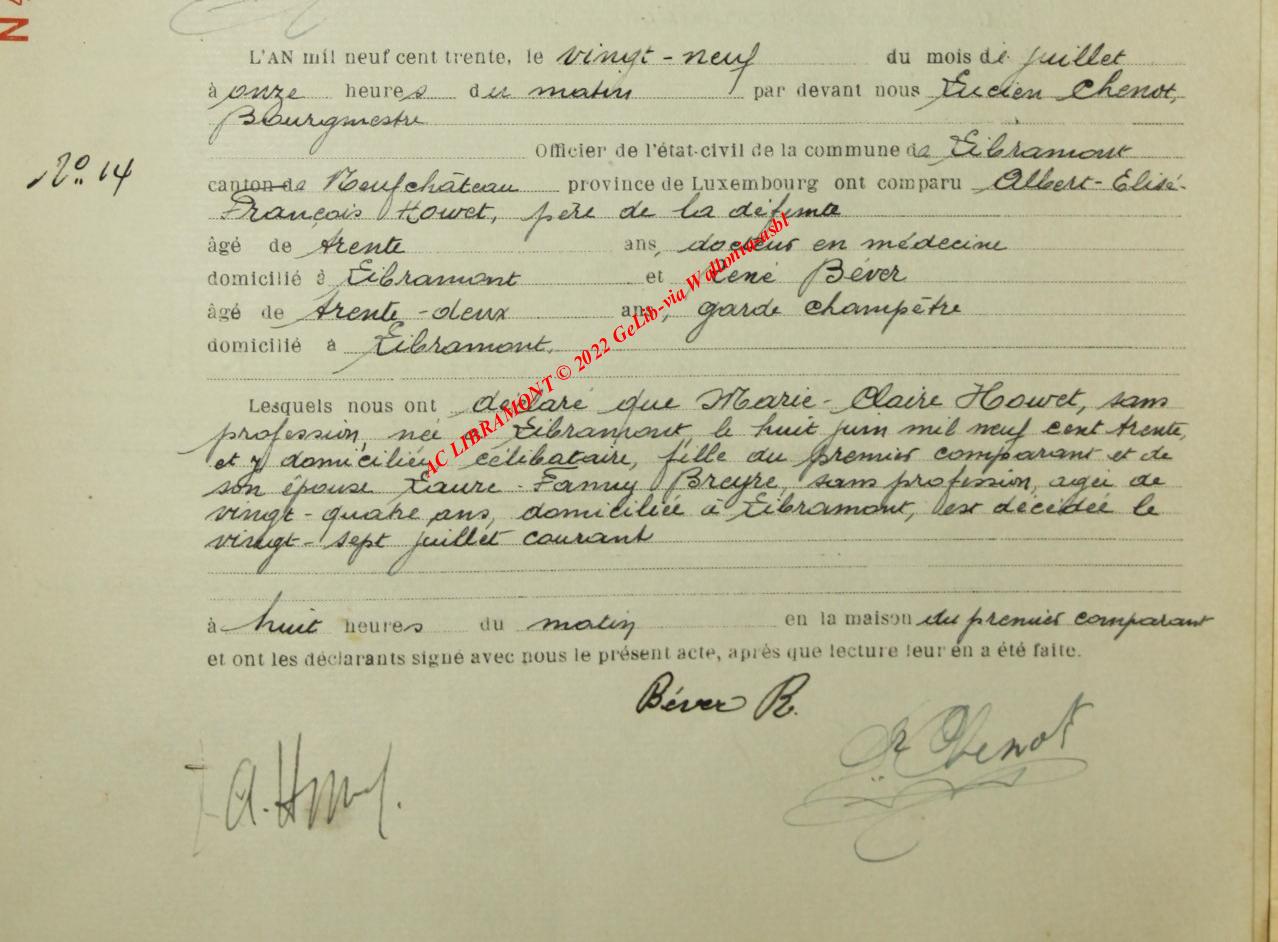 L'AN mil neuf cent trente, le vingt-neuf du mois de juillet
à onze heures du matin par devant nous Lucien Chenot,
Bourgmestre
Officier de l'état-civil de la commune de Libramont
N° 14
canton de Neufchâteau province de Luxembourg ont comparu Albert-Elisé-
François Howet, père de la défunte
âgé de trente ans, docteur en médecine
domicilié à Libramont et René Béver
âgé de trente-deux ans, garde champêtre
domicilié à Libramont.
Lesquels nous ont déclaré que Marie-Claire Howet, sans
profession, née à Libramont, le huit juin mil neuf cent trente,
et y domiciliée, célibataire, fille du premier comparant et de
son épouse Laure-Fanny Breyre, sans profession, agée de
vingt-quatre ans, domiciliée à Libramont, est décédée le
vingt-sept juillet courant
à huit heures du matin en la maison du premier comparant
et ont les déclarants signé avec nous le présent acte, après que lecture leur en a été faite.
Béver R.
Chenot
A.
AC LIBRAMONT © 2022 GeLib-via Wallonia-asbl